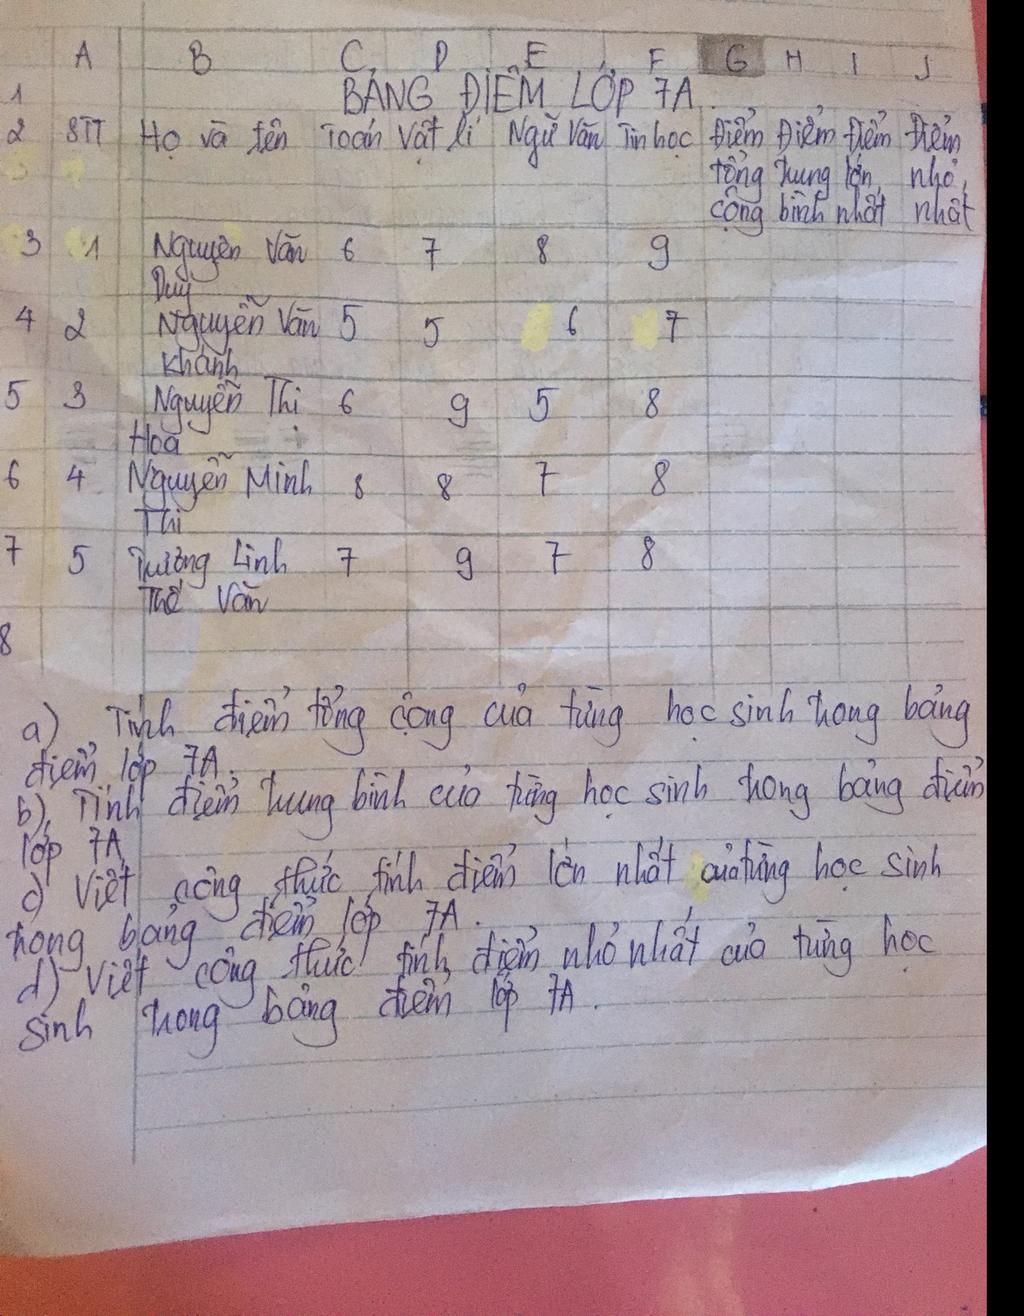 A B C D E F G H I J
1 BẢNG ĐIỂM LỚP 7A
2 STT Họ và tên Toán Vật lí Ngữ Văn Tin học Điểm Điểm Điểm Điểm
tổng trung lớn nhỏ
cộng bình nhất nhất
3 1 Nguyễn Văn 6 7 8 9
Duy
4 2 Nguyễn Văn 5 5 6 7
Khánh
5 3 Nguyễn Thi 6 9 5 8
Hoa
6 4 Nguyễn Minh 8 8 7 8
Thi
7 5 Trương Linh 7 9 7 8
Thế Văn
8
a) Tính điểm tổng cộng của từng học sinh trong bảng
điểm lớp 7A.
b) Tính điểm trung bình của từng học sinh trong bảng điểm
lớp 7A
c) Viết công thức tính điểm lớn nhất của từng học sinh
trong bảng điểm lớp 7A.
d) Viết công thức tính điểm nhỏ nhất của từng học
sinh trong bảng điểm lớp 7A.